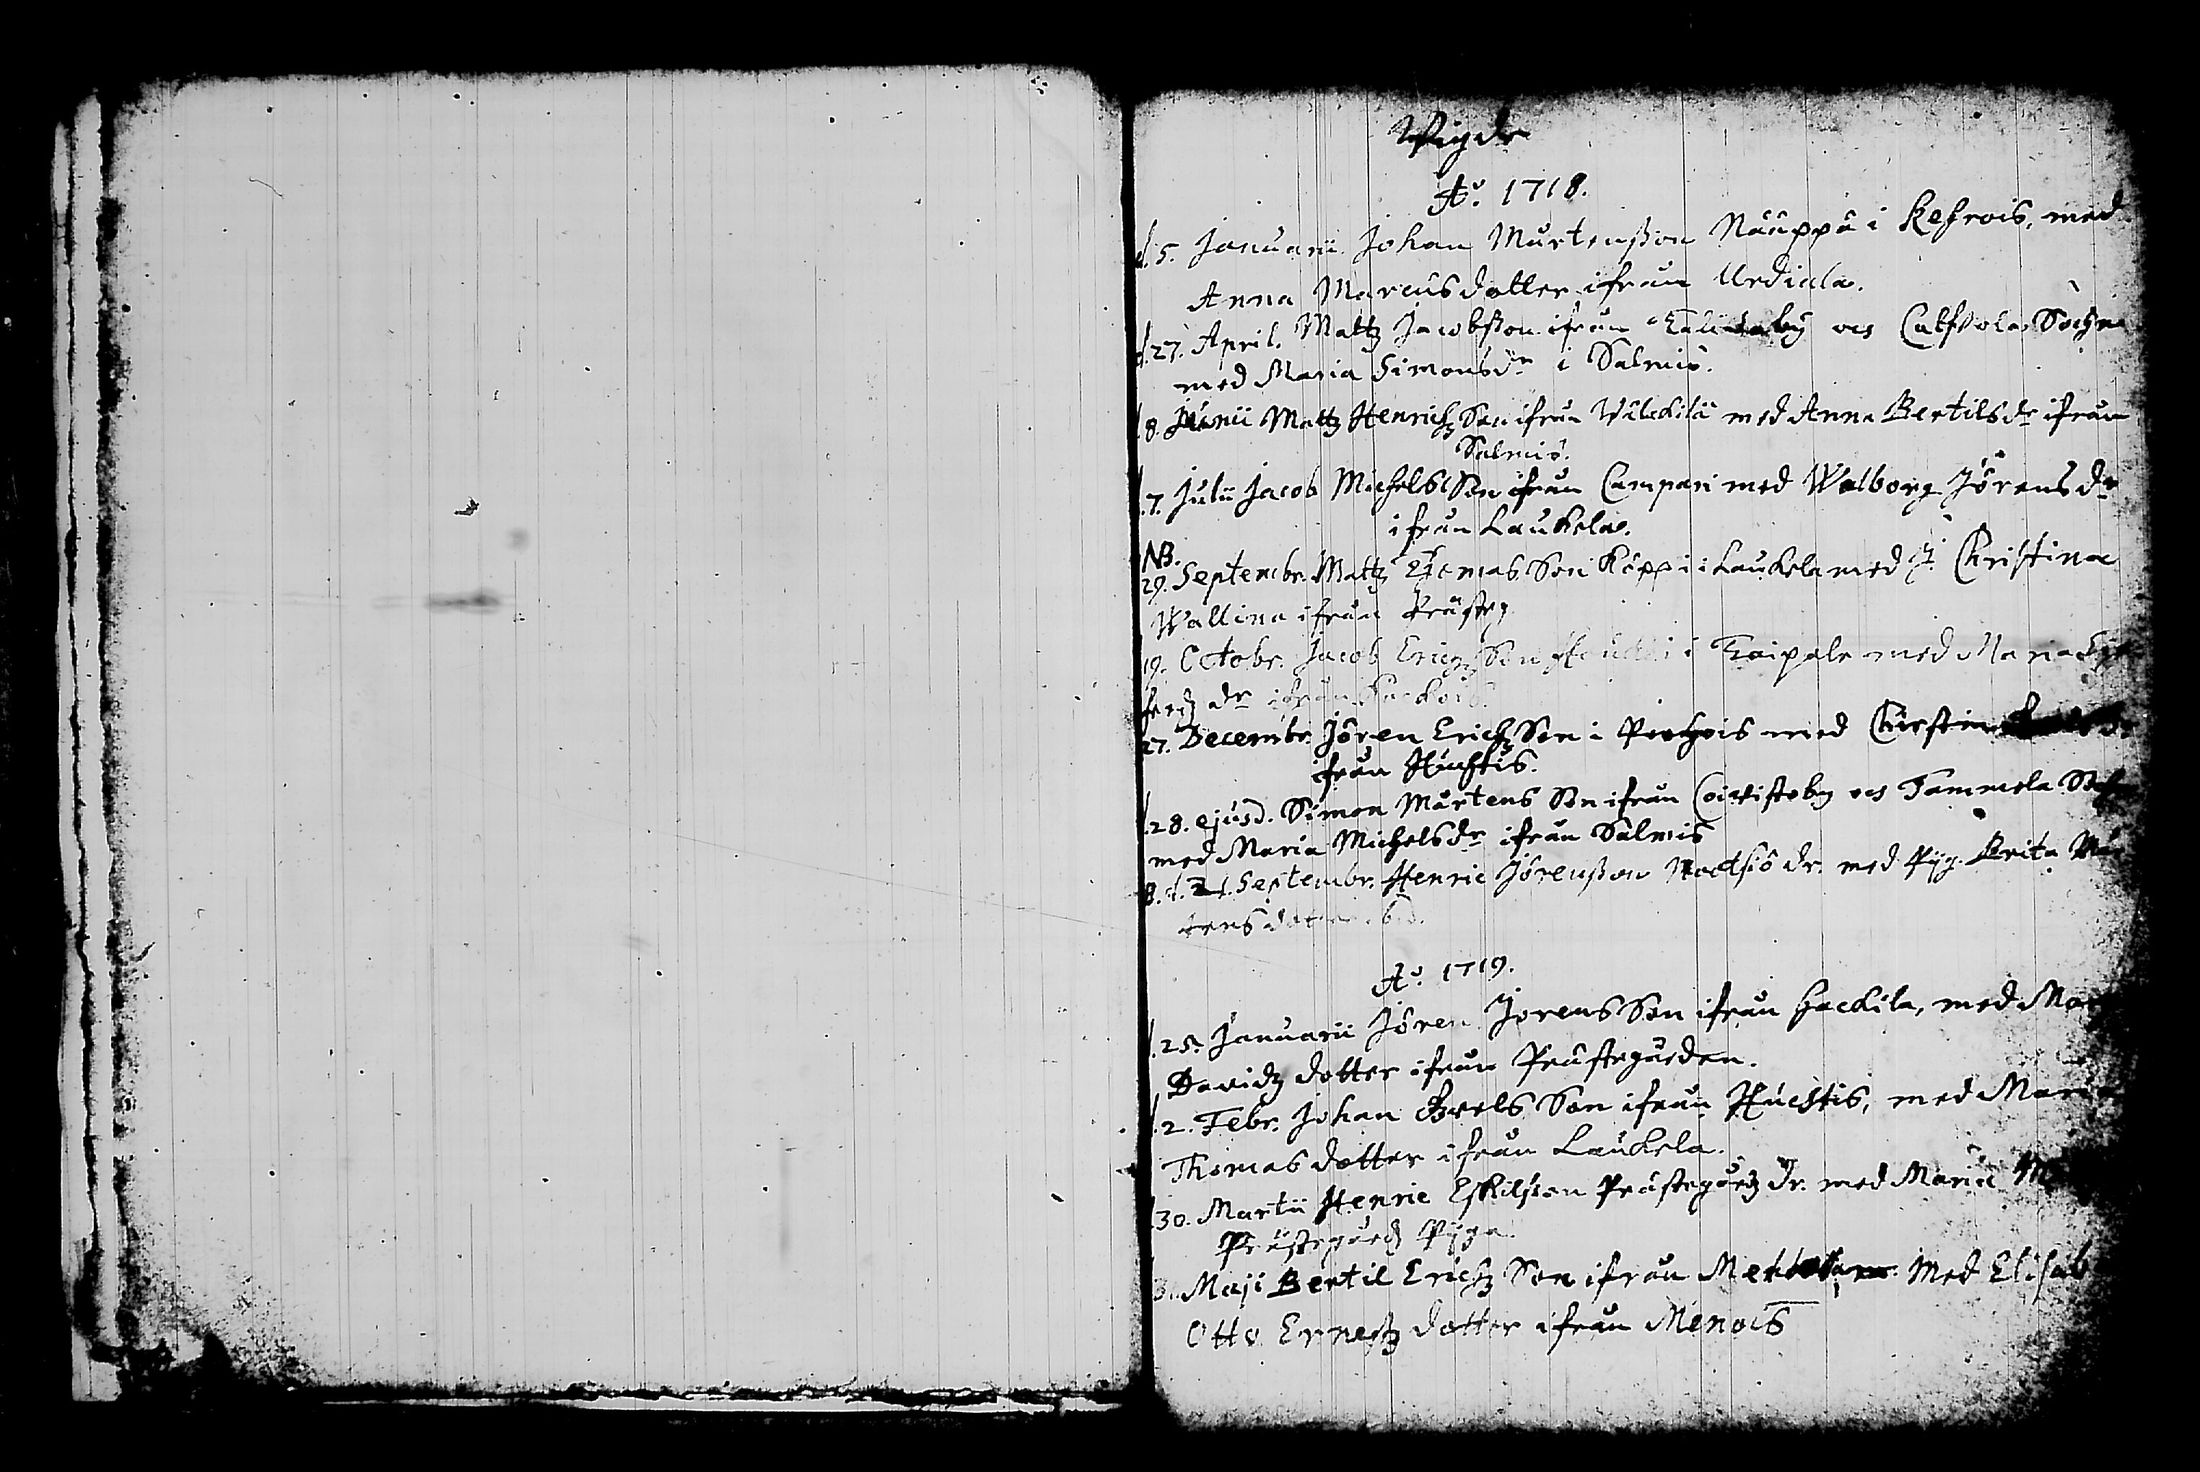 Wigde
Ao. 1718.
d. 5. Januarii. Johan Mårtensson Näuppä i Kehrois, med
Anna Marcusdotter ifrån Urdiala.
d. 27. April. Mattz Jacobsson ifrån och Calfvola Sochn
med Maria Simonsdr i Salmis.
d. 8. Junii Mattz Henrichz Son ifrån Wälckilä med Anna Bertilsdr ifrån
Salmis.
d. 7. Julii Jacob Michelsson ifrån Campari med Walborg Jörensdr
ifrån Laukela.
NB.
29. Septembr. Mattz Thomas Son Käppi i Laukela med Christina
Wallina ifrån Prästeg
19. Octobr. Jacob Erichz Son i Kaipale med Maria
dr ifrån
27. Decembr. Jören Erichz Son i med Chirstin
ifrån Huchtis.
d. 28. ejusd. Simon Mårtens Son ifrån Coivistoby och Tammela
med Maria Michelsdr ifrån Salmis
8. d. Septembr. Henric Jörensson dr. med Pig. Brita Mår
tens dotter
Ao. 1719.
d. 25. Januarii Jören Jörens Son ifrån Hackila, med
Davidz dotter ifrån Prästegården.
d. 2. Febr. Johan Grels Son ifrån Huchtis, med Maria
Thomas dotter ifrån Laukela.
d. 30. Martii Henric Eskilsson Prästegårdz dr. med Maria
Prästegårdz Piga.
3. Maji Bertil Erichz Son ifrån med Elisab
Otto Ernestz dotter ifrån Menois